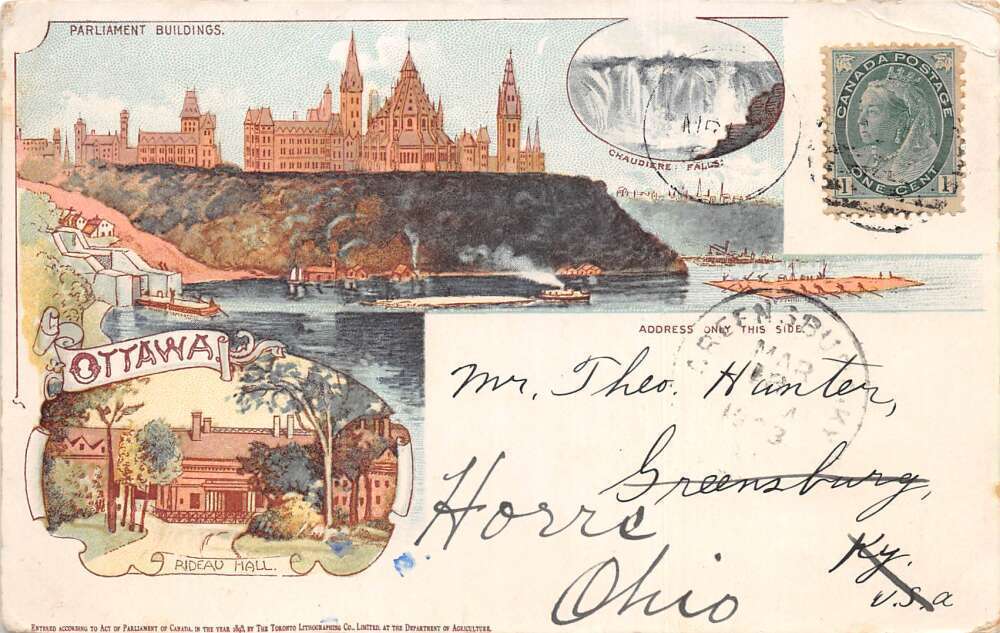 PARLIAMENT BUILDINGS.
CHAUDIERE FALLS:
CANADA POSTAGE
1 ONE CENT 1
OTTAWA.
ADDRESS ONLY THIS SIDE.
GREENSBU KY
MAR
Mr. Theo. Hunter,
Greensburg,
Ky.
U.S.a
Ohio
RIDEAU HALL.
ENTERED ACCORDING TO ACT OF PARLIAMENT OF CANADA, IN THE YEAR 1898, BY THE TORONTO LITHOGRAPHING CO., LIMITED, AT THE DEPARTMENT OF AGRICULTURE.